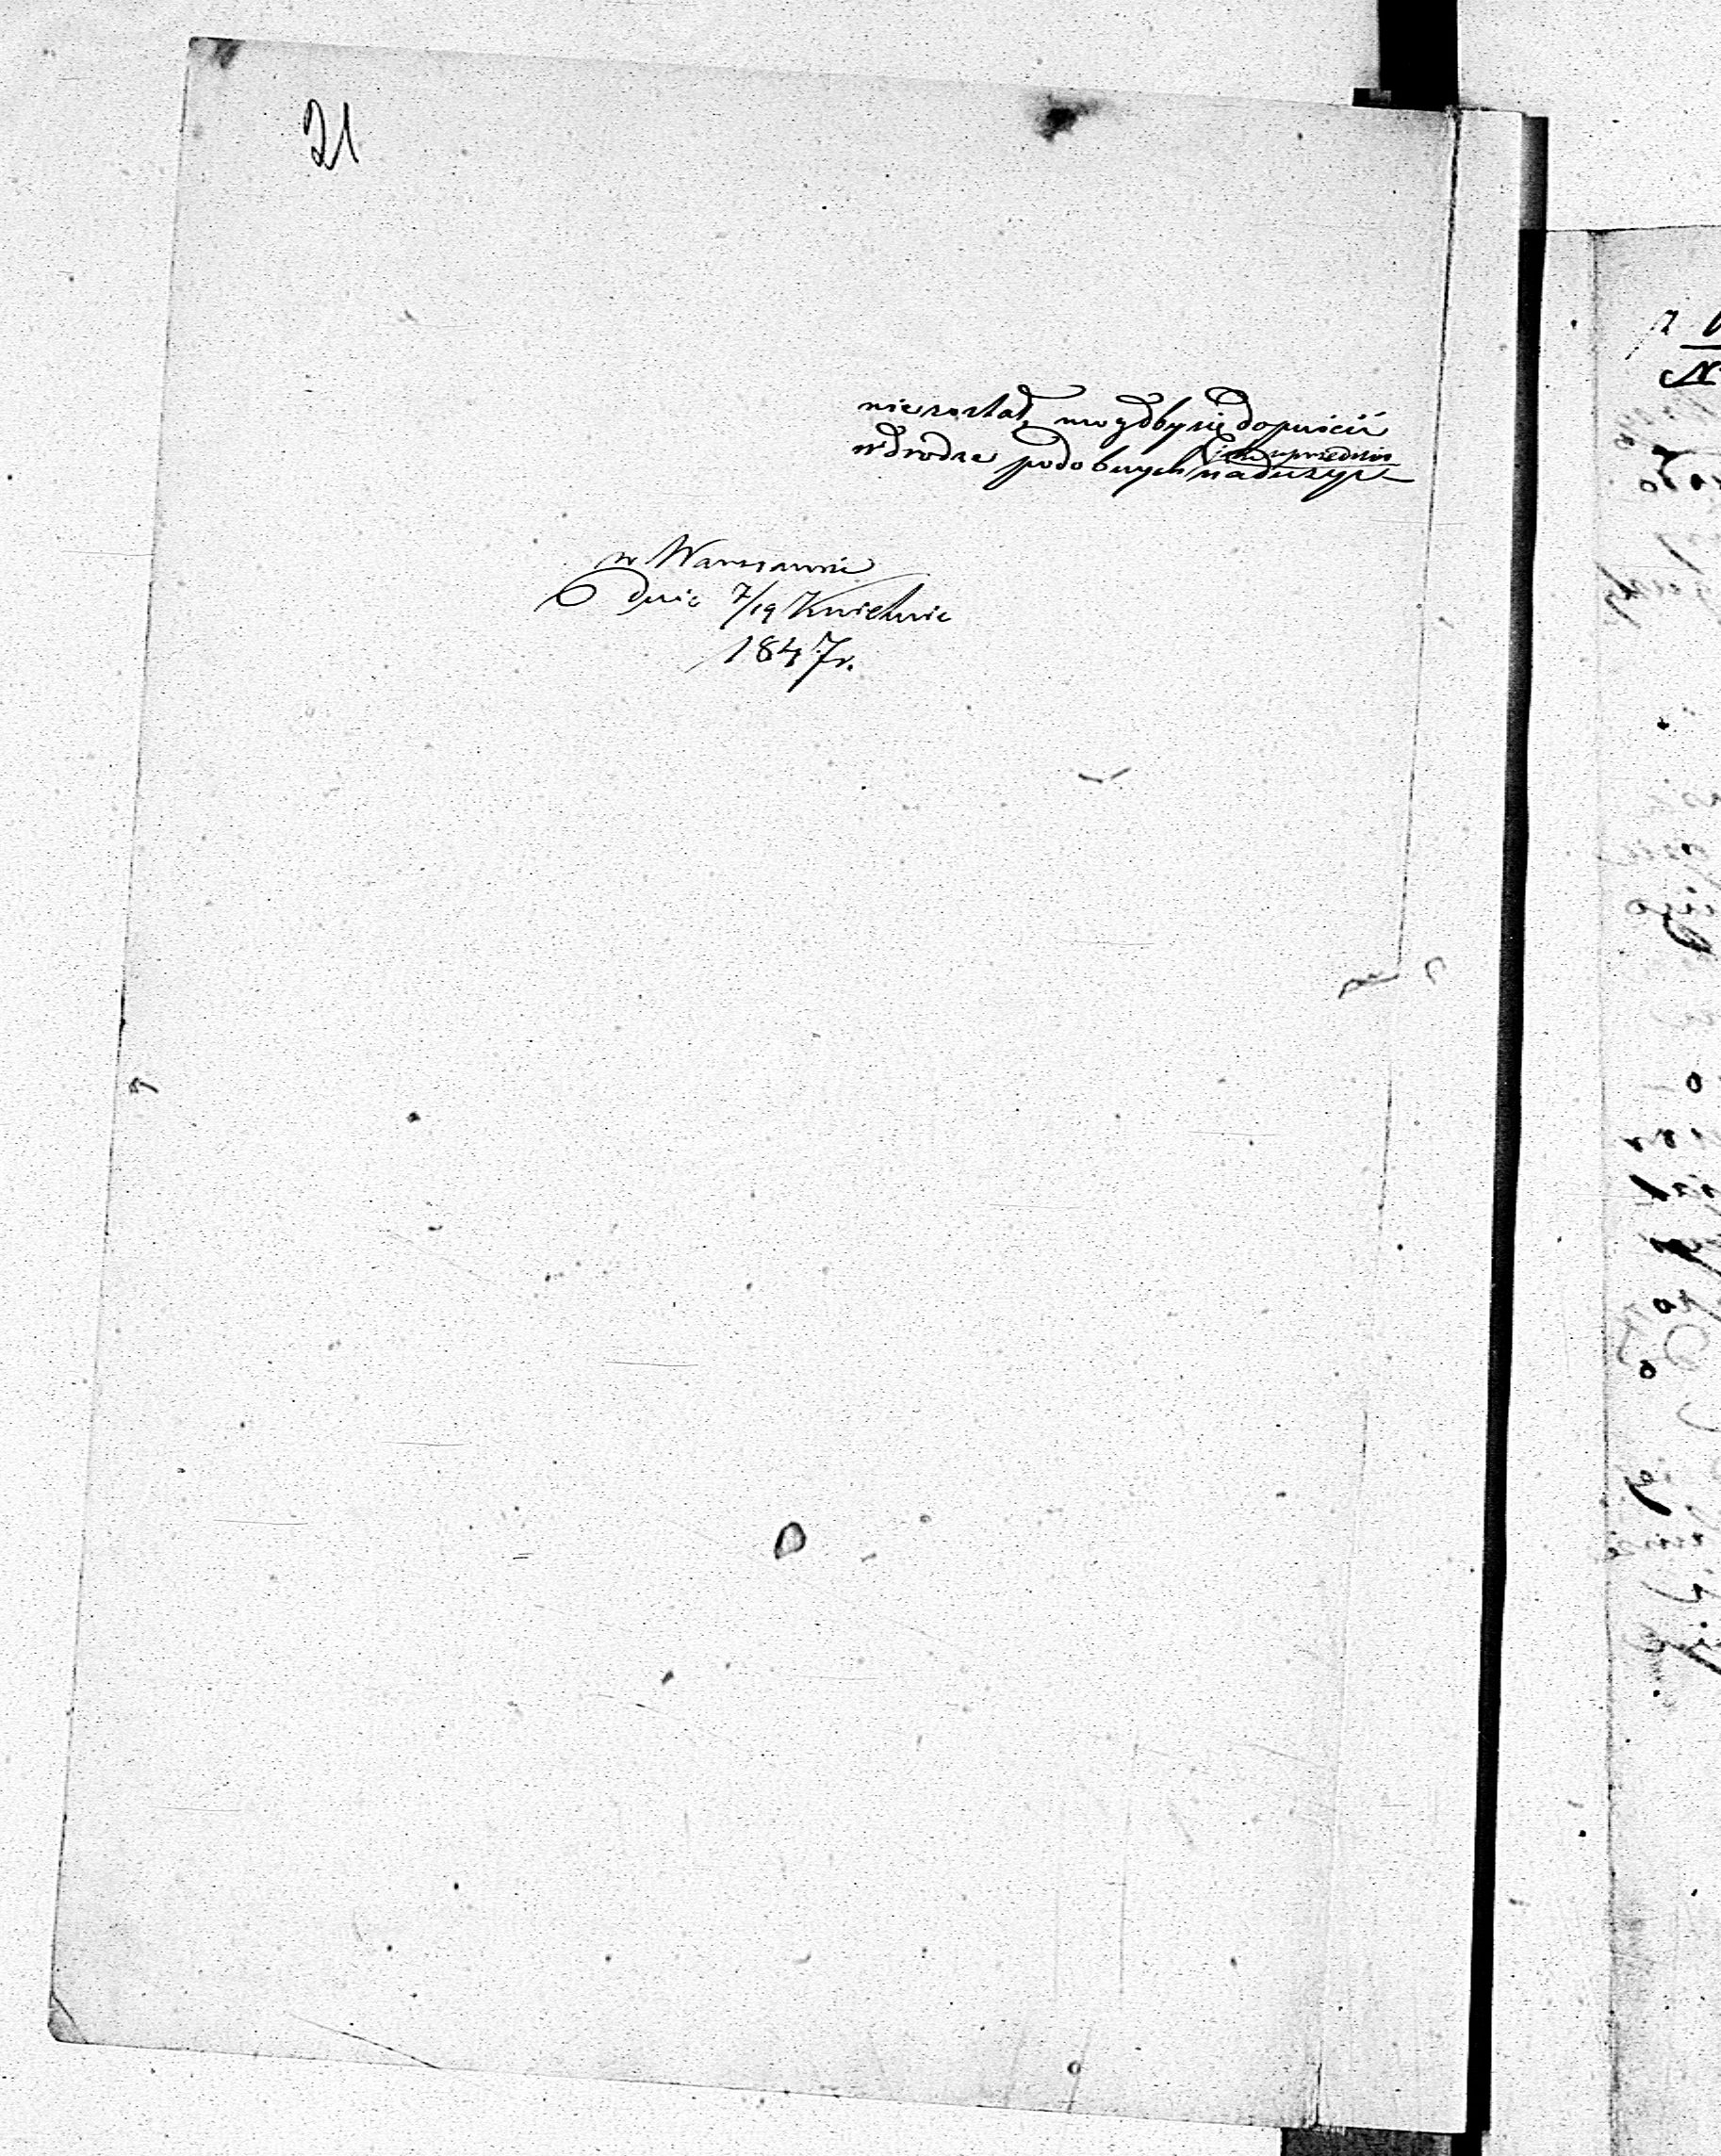 21
nie został, mógłby się dopuścić
w drodze podobnych jak uprzednio nadużyć
w Warszawie
Dnia 7/19 Kwietnia
1847 r.